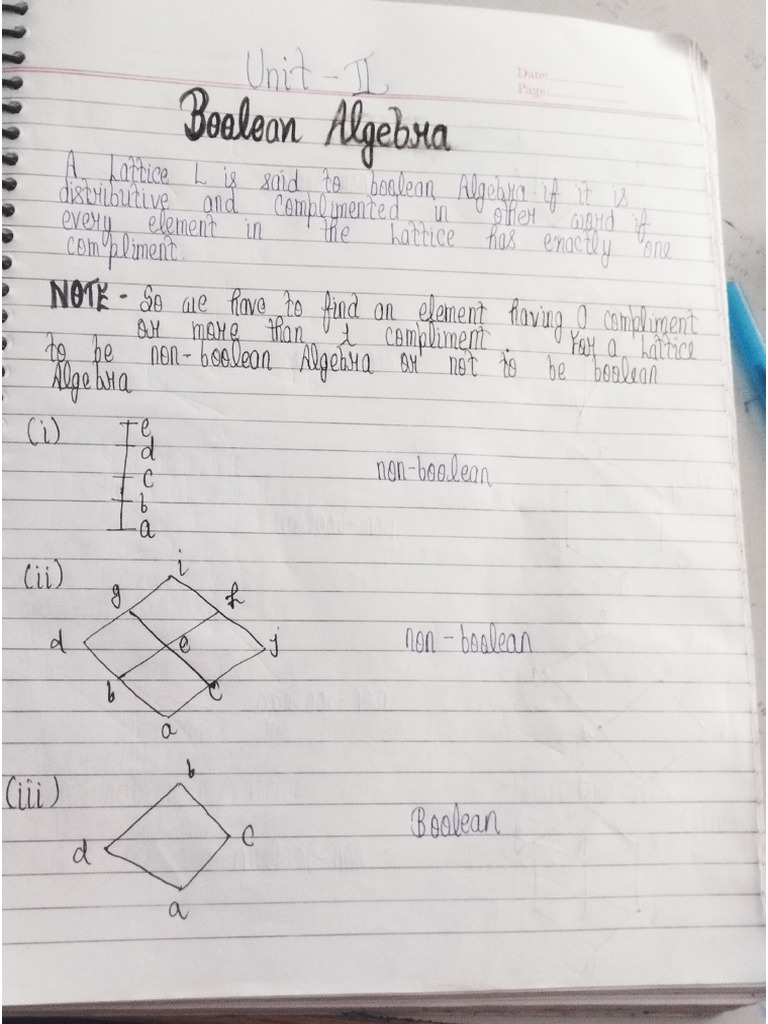 Unit - II
Date:
Page:
Boolean Algebra
A Lattice L is said to boolean Algebra if it is
distributive and complimented in other word if
every element in the Lattice has enactly one
compliment.
NOTE - So we have to find an element having 0 compliment
or more than 1 compliment. For a Lattice
to be non-boolean Algebra or not to be boolean
Algebra
(i)
e
d
c
b
a
non-boolean
(ii)
i
g f
d e j
b c
a
non-boolean
(iii)
b
d c
a
Boolean